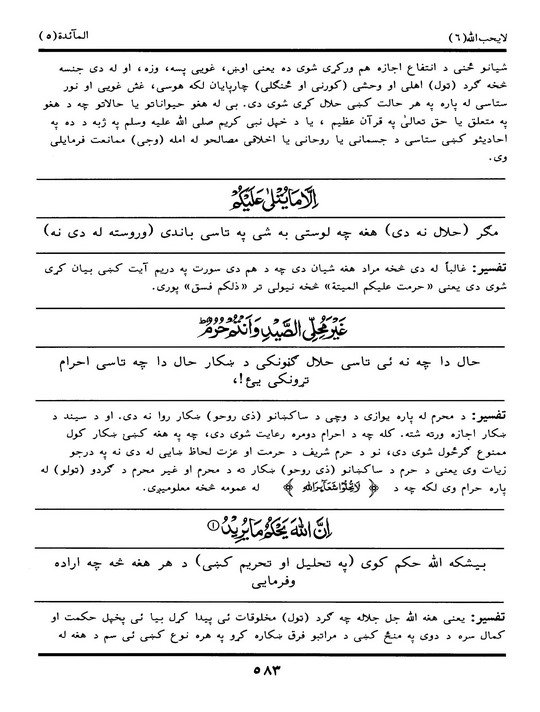 لايحب الله (٦)
المآئدة (٥)
شیانو څنی د انتفاع اجازه هم ورکړی شوی ده یعنی اوښ، غویی پسه، وزه، او له دی جنسه
څخه ګرد (ټول) اهلی او وحشی (کورنی او ځنګلی) چارپایان لکه هوسی، غش غویی او نور
ستاسی له پاره په هر حالت کښی حلال کړی شوی دی. بی له هغو حیواناتو یا حالاتو چه د هغو
په متعلق یا حق تعالیٰ په قرآن عظیم ، یا د خپل نبی کریم صلی الله علیه وسلم په ژبه د ده په
احادیثو کښی ستاسی د جسمانی یا روحانی یا اخلاقی مصالحو له امله (وجی) ممانعت فرمایلی
وی.
اِلَّا مَا يُتْلٰى عَلَيْكُمْ
مګر (حلال نه دی) هغه چه لوستی به شی په تاسی باندی (وروسته له دی نه)
تفسیر: غالباً له دی څخه مراد هغه شیان دی چه د هم دی سورت په دریم آیت کښی بیان کړی
شوی دی یعنی «حرمت علیکم المیتة» څخه نیولی تر «ذلکم فسق» پوری.
غَيْرَ مُحِلِّى الصَّيْدِ وَاَنْتُمْ حُرُمٌ ؕ
حال دا چه نه ئی تاسی حلال ګڼونکی د ښکار حال دا چه تاسی احرام
تړونکی یئ!،
تفسیر: د محرم له پاره یوازی د وچی د ساکښانو (ذی روحو) ښکار روا نه دی. او د سیند د
ښکار اجازه ورته شته. کله چه د احرام دومره رعایت شوی دی، چه په هغه کښئ ښکار کول
ممنوع ګرځول شوی دی، نو د حرم شریف د حرمت او عزت لحاظ ښایی له دی نه په درجو
زیات وی یعنی د حرم د ساکښانو (ذی روحو) ښکار ته د محرم او غیر محرم د ګردو (ټولو) له
پاره حرام وی لکه چه د ﴿ لَا تُحِلُّوْا شَعَآئِرَ اللهِ ﴾ له عمومه څخه معلومیږی.
اِنَّ اللهَ يَحْكُمُ مَا يُرِيْدُ ①
بیشکه الله حکم کوی (په تحلیل او تحریم کښی) د هر هغه څه چه اراده
وفرمایی
تفسیر: یعنی هغه الله جل جلاله چه ګرد (ټول) مخلوقات ئی پیدا کړل بیا ئی پخپل حکمت او
کمال سره د دوی په منځ کښی د مراتبو فرق ښکاره کړو په هره نوع کښی ئی سم د هغه له
٥٨٣